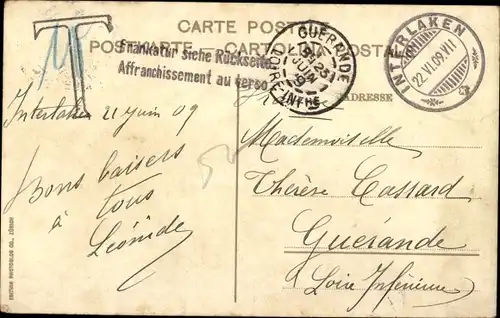 CARTE POSTALE
POSTKARTE CARTOLINA POSTALE
T
Frankatur siehe Rückseite
Affranchissement au verso
GUERANDE
23
JUIN
09
LOIRE-INFRE
INTERLAKEN
22.VI.09.VII
ADRESSE
Interlaken 21 juin 09
Bons baisers
à tous
Léonide
Mademoiselle
Thérèse Cassard
Guérande
Loire Inférieure
EDITION PHOTOGLOB CO., ZÜRICH